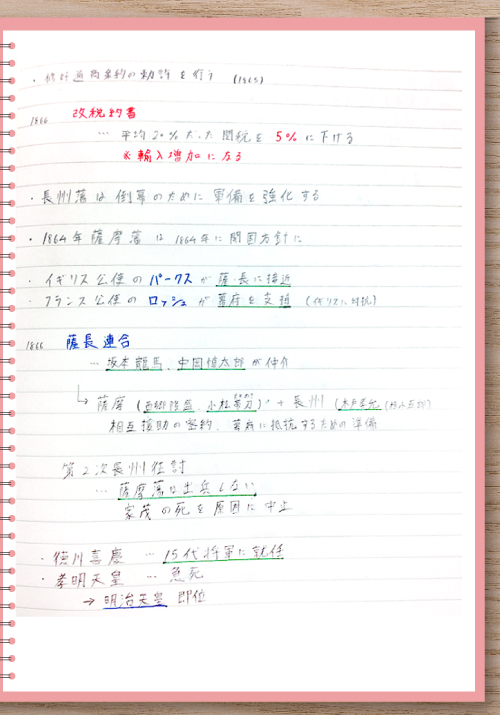 ・修好通商条約の勅許を行う (1865)
1866 改税約書
… 平均20%だった関税を5%に下げる
※輸入増加になる
・長州藩は倒幕のために軍備を強化する
・1864年薩摩藩は1864年に開国方針に
・イギリス公使のパークスが薩・長に接近
・フランス公使のロッシュが幕府を支援 (イギリスに対抗)
1866 薩長連合
… 坂本龍馬、中岡慎太郎が仲介
→ 薩摩 (西郷隆盛、小松帯刀) + 長州 (木戸孝允 (桂小五郎)
相互援助の密約、幕府に抵抗するための準備
第2次長州征討
… 薩摩藩は出兵しない
家茂の死を原因に中止
・徳川喜慶 … 15代将軍に就任
・孝明天皇 … 急死
→ 明治天皇 即位